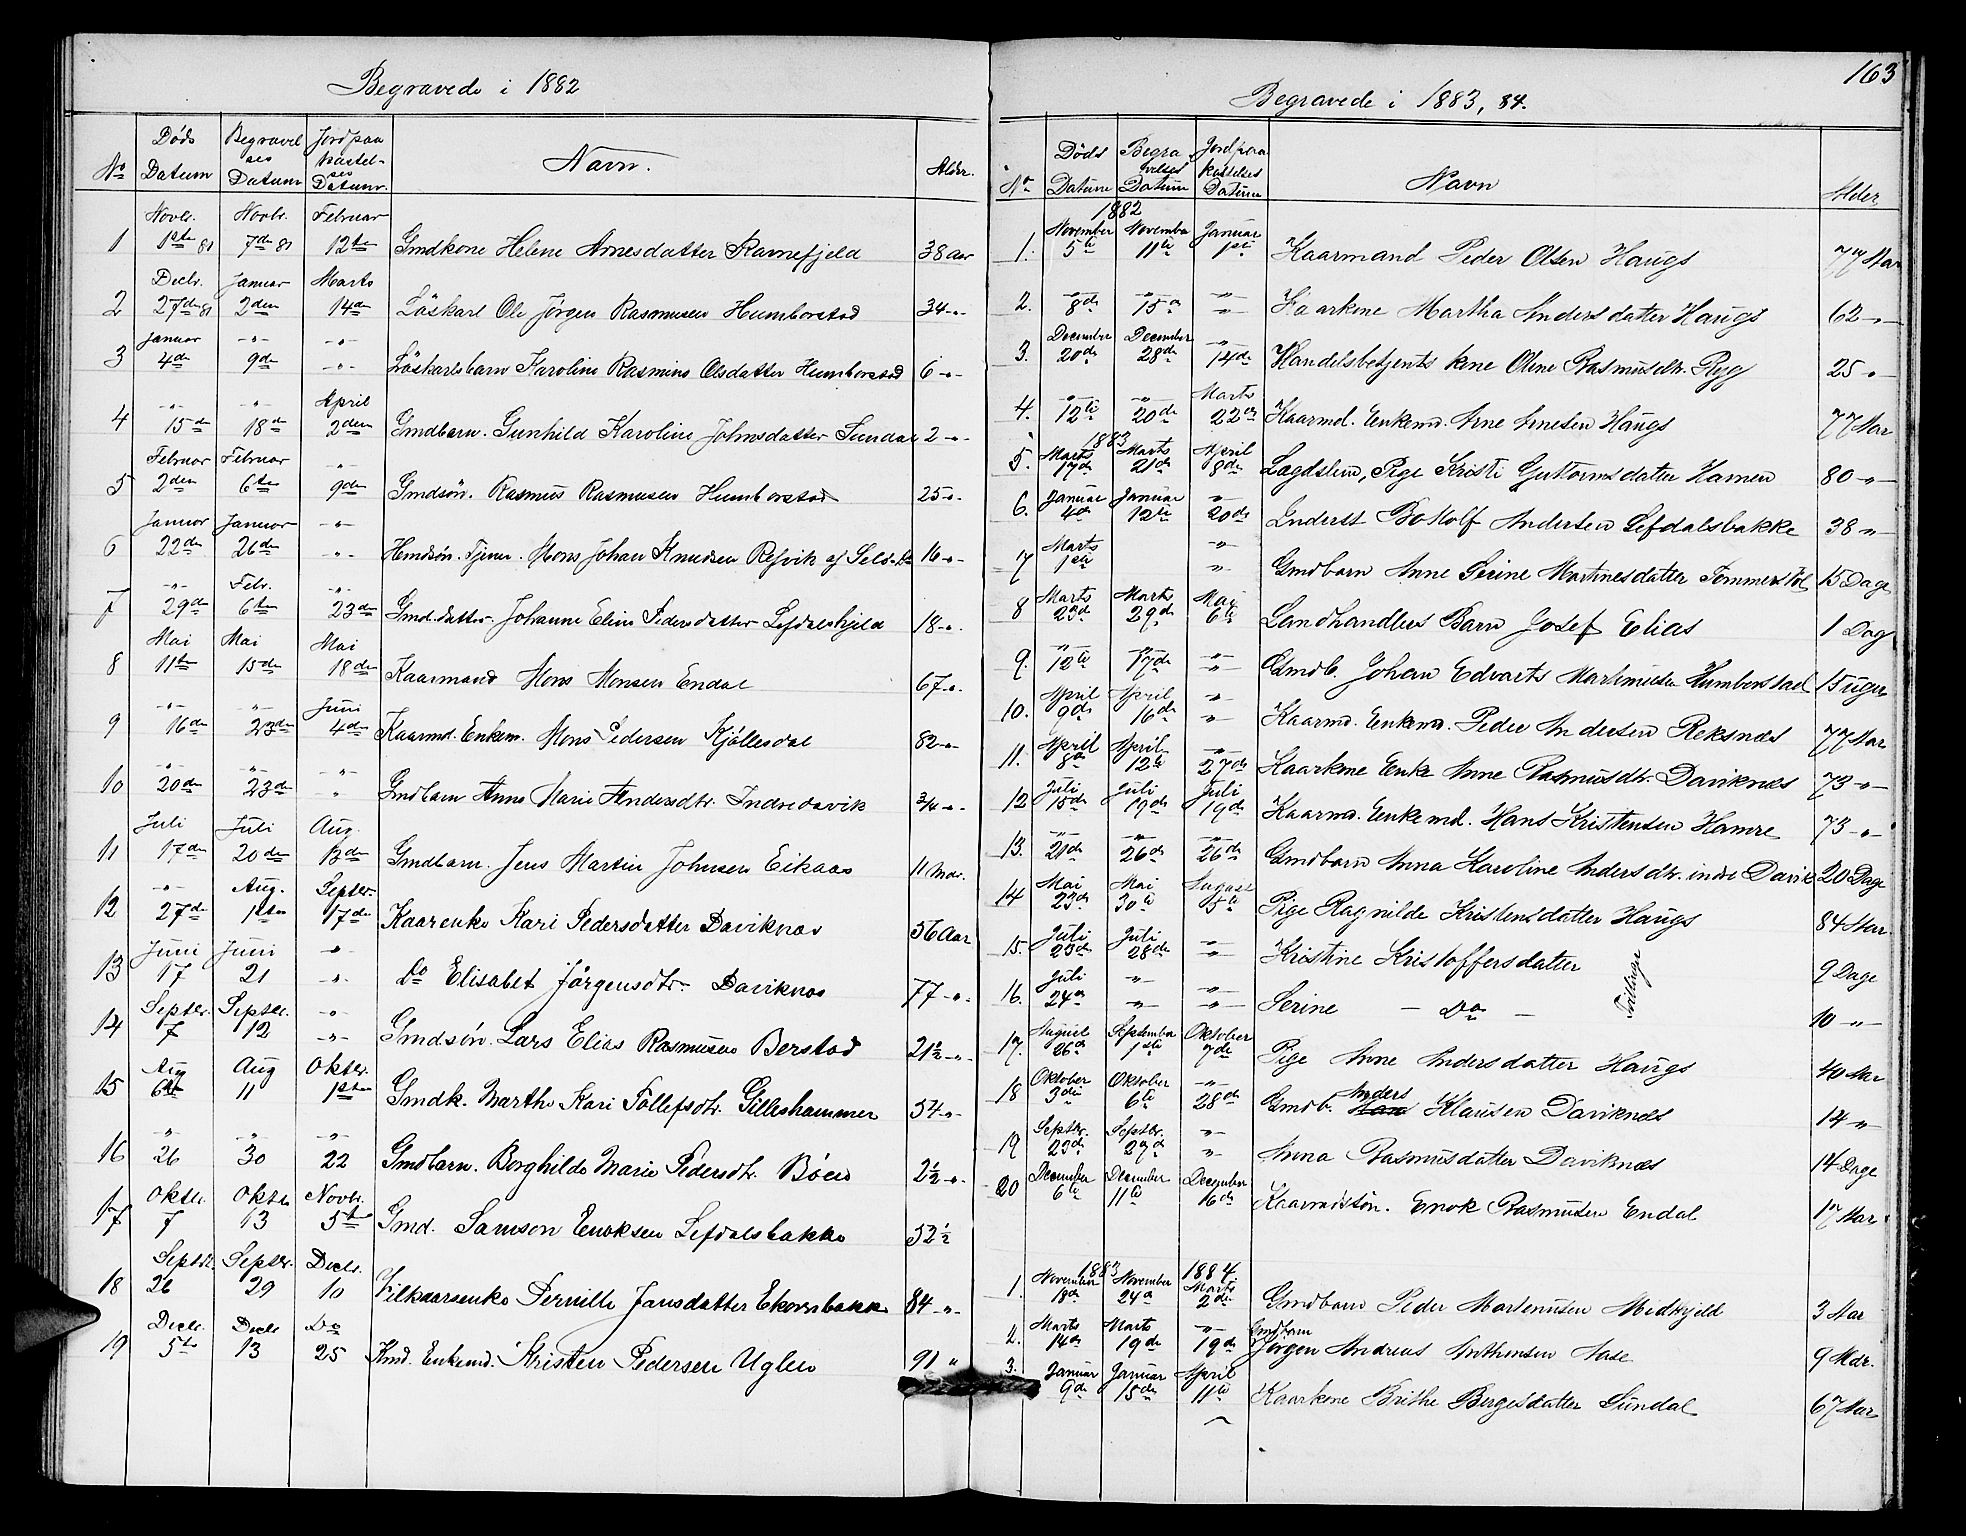 Begravede i 1882
No Døds Datum Begravelses Datum Jordpaakastelses Datum Navn. Alder.
1 Novbr. 1ste 81 Novbr. 7de 81 Februar 12te Gmdkone Helene Arnesdatter Ramefjeld 38 aar
2 Decbr. 27de 81 Januar 2den Marts 14de Löskarl Ole Jörgen Rasmusen Humborstad 34 -"-
3 Januar 4de -"- 9de -"- -"- Löskarlsbarn Karoline Rasmine Olsdatter Humborstad 6 -"-
4 -"- 15de -"- 18de April 2den Gmdbarn. Gunhild Karoline Johnsdatter Sundal 2 -"-
5 Februar 2den Februar 6te -"- 9de Gmdsön. Rasmus Rasmusen Humborstad 25 -"-
6 Januar 22de Januar 26de -"- -"- Hmdsön. Tjener. Mons Johan Knudsen Refvik af Selö 16 -"-
7 -"- 29de Febr. 6te -"- 23de Gmd.datter Johanne Eline Pedersdatter Lefdalshjeld 18 -"-
8 Mai 11te Mai 15de Mai 18de Kaarmand Mons Monsen Endal 67 -"-
9 -"- 16de -"- 23de Juni 4de Kaarmd. Enkem. Mons Pedersen Kjöllesdal 82 -"-
10 -"- 20de -"- 23de -"- " Gmdbarn Anne Marie Andersdtr. Indredavik 3/4 -"-
11 Juli 17de Juli 20de Aug. 13de Gmdbarn. Jens Martin Johnsen Eikaas 11 Mdr.
12 -"- 27de Aug. 1ste Septbr. 17de Kaarenke Kari Pedersdatter Daviknes 56 Aar
13 Juni 17 Juni 21 -"- -"- Do Elisabet Jörgensdtr. Daviknes 77 -"-
14 Septbr. 7 Septbr. 12 -"- -"- Gmdsön. Lars Elias Rasmusen Berstad 21½ -"-
15 Aug 6te Aug 11 Oktbr. 1ste Gmdk. Marthe Kari Tollefsdtr. Gilleshammer 54 -"-
16 " 26 -"- 30 -"- 22 Gmdbarn. Borghilde Marie Pedersdtr. Böen 2½ -"-
17 Oktbr. 7 Oktbr 13 Novbr. 5te Gmd. Samson Enoksen Lefdalsbakke 52½
18 Septbr. 26 Septbr. 29 Decbr. 10 Vilkaarsenke Pernille Jansdatter Ekornbakke 84 -"-
19 Decbr. 5te Decbr 13 Do 25 Kmd. Enkemd. Kristen Pedersen Uglen 91 "
163
Begravede i 1883, 84.
No Døds Datum Begravelses Datum Jordpaakastelses Datum Navn Alder
1882
1. November 5te November 11te Januar 1ste Kaarmand Peder Olsen Haugs 77 Aar
2. -"- 8de -"- 15de -"- -"- Kaarkone Martha Andersdatter Haugs 62 -"-
3. December 20de December 28de -"- 14de Handelsbetjents kone Oline Rasmusdtr. Rygg 25 "
4. -"- 12te -"- 20de Marts 22de Kaarmd. Enkemd. Arne Arnesen Haugs 77 Aar
1883
5. Marts 17de Marts 21de April 8de Lægdslem, Pige Kristi Guttormsdatter Hamen 80 -"-
6. Januar 4de Januar 12te -"- 20de Inderst Bottolf Andersen Lefdalsbakke 38 -"-
7 Marts 1ste -"- " Gmdbarn Anne Serine Martinesdatter 15 Dage
8 Marts 23de Marts 29de Mai 6te Landhandlers Barn Josef Elias 1 Dag
9. -"- 12te -"- 17de -"- -"- Gmdb. Johan Edvarts Martinusen Humborstad 15 uger
10. April 9de April 16de -"- -"- Kaarmd. Enkemd. Peder Andersen Reksnes 77 Aar
11. April 8de April 12te -"- 27de Kaarkone Enke Anne Rasmusdtr. Daviknes 73 -"-
12 Juli 15de Juli 19de Juli 19de Kaarmd. Enkemd. Hans Kristensen Hamre 73 -"-
13. -"- 21de -"- 26de -"- 26de Gmdbarn Anna Karoline Andersdtr. indre Davik 20 Dage
14 Mai 23de Mai 30te August 5te Pige Ragnilde Kristensdatter Haugs 84 Aar
15. Juli 23de Juli 28de -"- -"- Kristine Kristoffersdatter 9 Dage
Tvillinger
16. Juli 24de -"- -"- -"- -"- Serine - Do - 10 -"-
17. August 26de September 1ste Oktober 7de Pige Anne Andersdatter Haugs 40 Aar
18 Oktober 3die Oktober 6te -"- 28de Gmdb. Anders Klausen Daviknes 14 -"-
19 Septbr. 23de Septbr. 27de -"- " Anna Rasmusdatter Daviknes 14 Dage
20 December 6te December 11te December 16de Kaarmdssön. Enok Rasmusen Endal 17 Aar
1883 1884
1. November 18de November 24de Marts 2den Gmdbarn Peder Martinusen Midhjeld 3 Aar
2. Marts 14de Marts 19de -"- 19de Gmdbarn Jörgen Andreas Anthonsen Aase 9 Mdr.
3. Januar 9de Januar 15de April 11te Kaarkone Brithe Börgesdatter Sundal 67 Aar